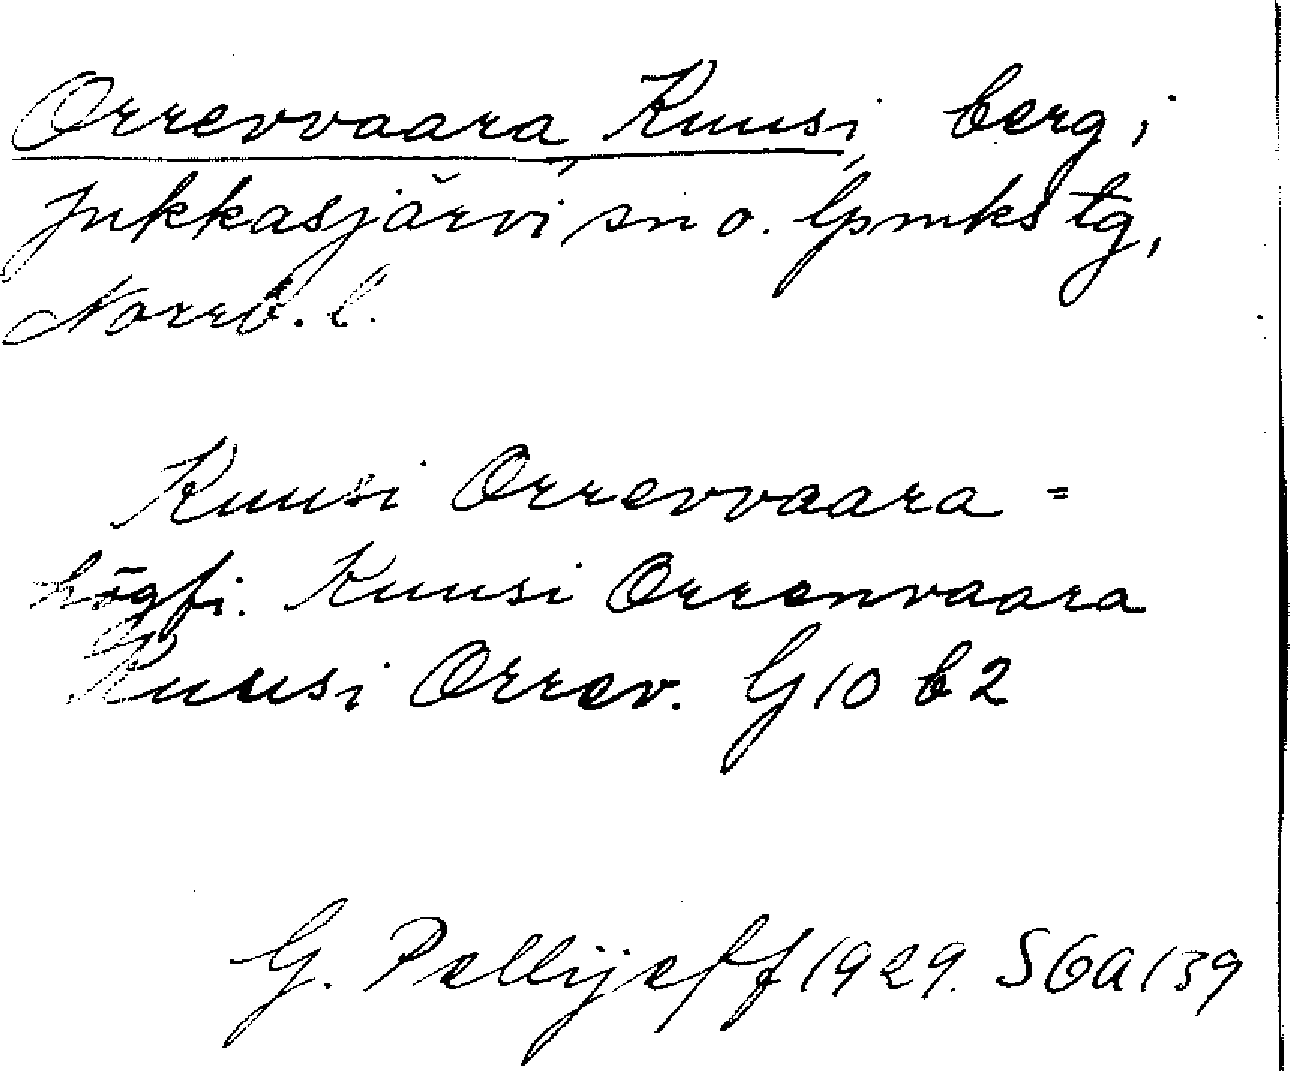 Orrevvaara, Kuusi, berg,
Jukkasjärvi sn o. lpmks tg,
Norrb. l.
Kuusi Orrevvaara =
högfi. Kuusi Orrenvaara
Kuusi Orrev. G10 b2
G. Pellijeff 1929. SGA 139